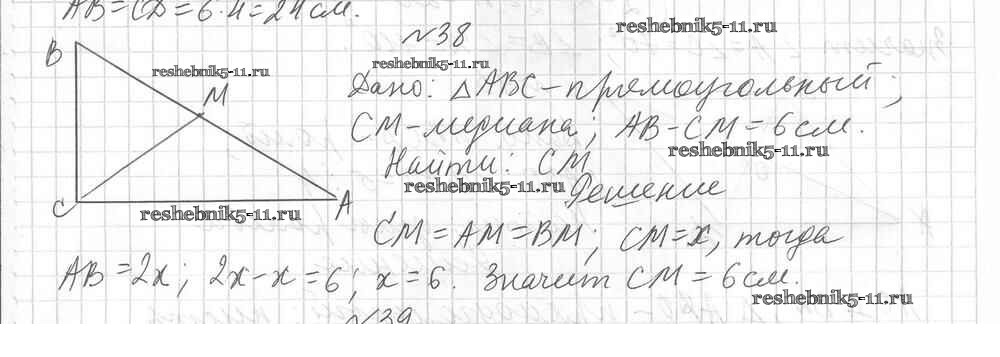 AB = CD = 6·4 = 24 см.
№38
reshebnik5-11.ru
B
reshebnik5-11.ru
reshebnik5-11.ru
M
Дано: △ABC – прямоугольный;
CM – медиана; AB - CM = 6 см.
reshebnik5-11.ru
Найти: CM
reshebnik5-11.ru
Решение
C
A
reshebnik5-11.ru
CM = AM = BM; CM = x, тогда
AB = 2x; 2x - x = 6; x = 6. Значит CM = 6 см.
reshebnik5-11.ru
№39